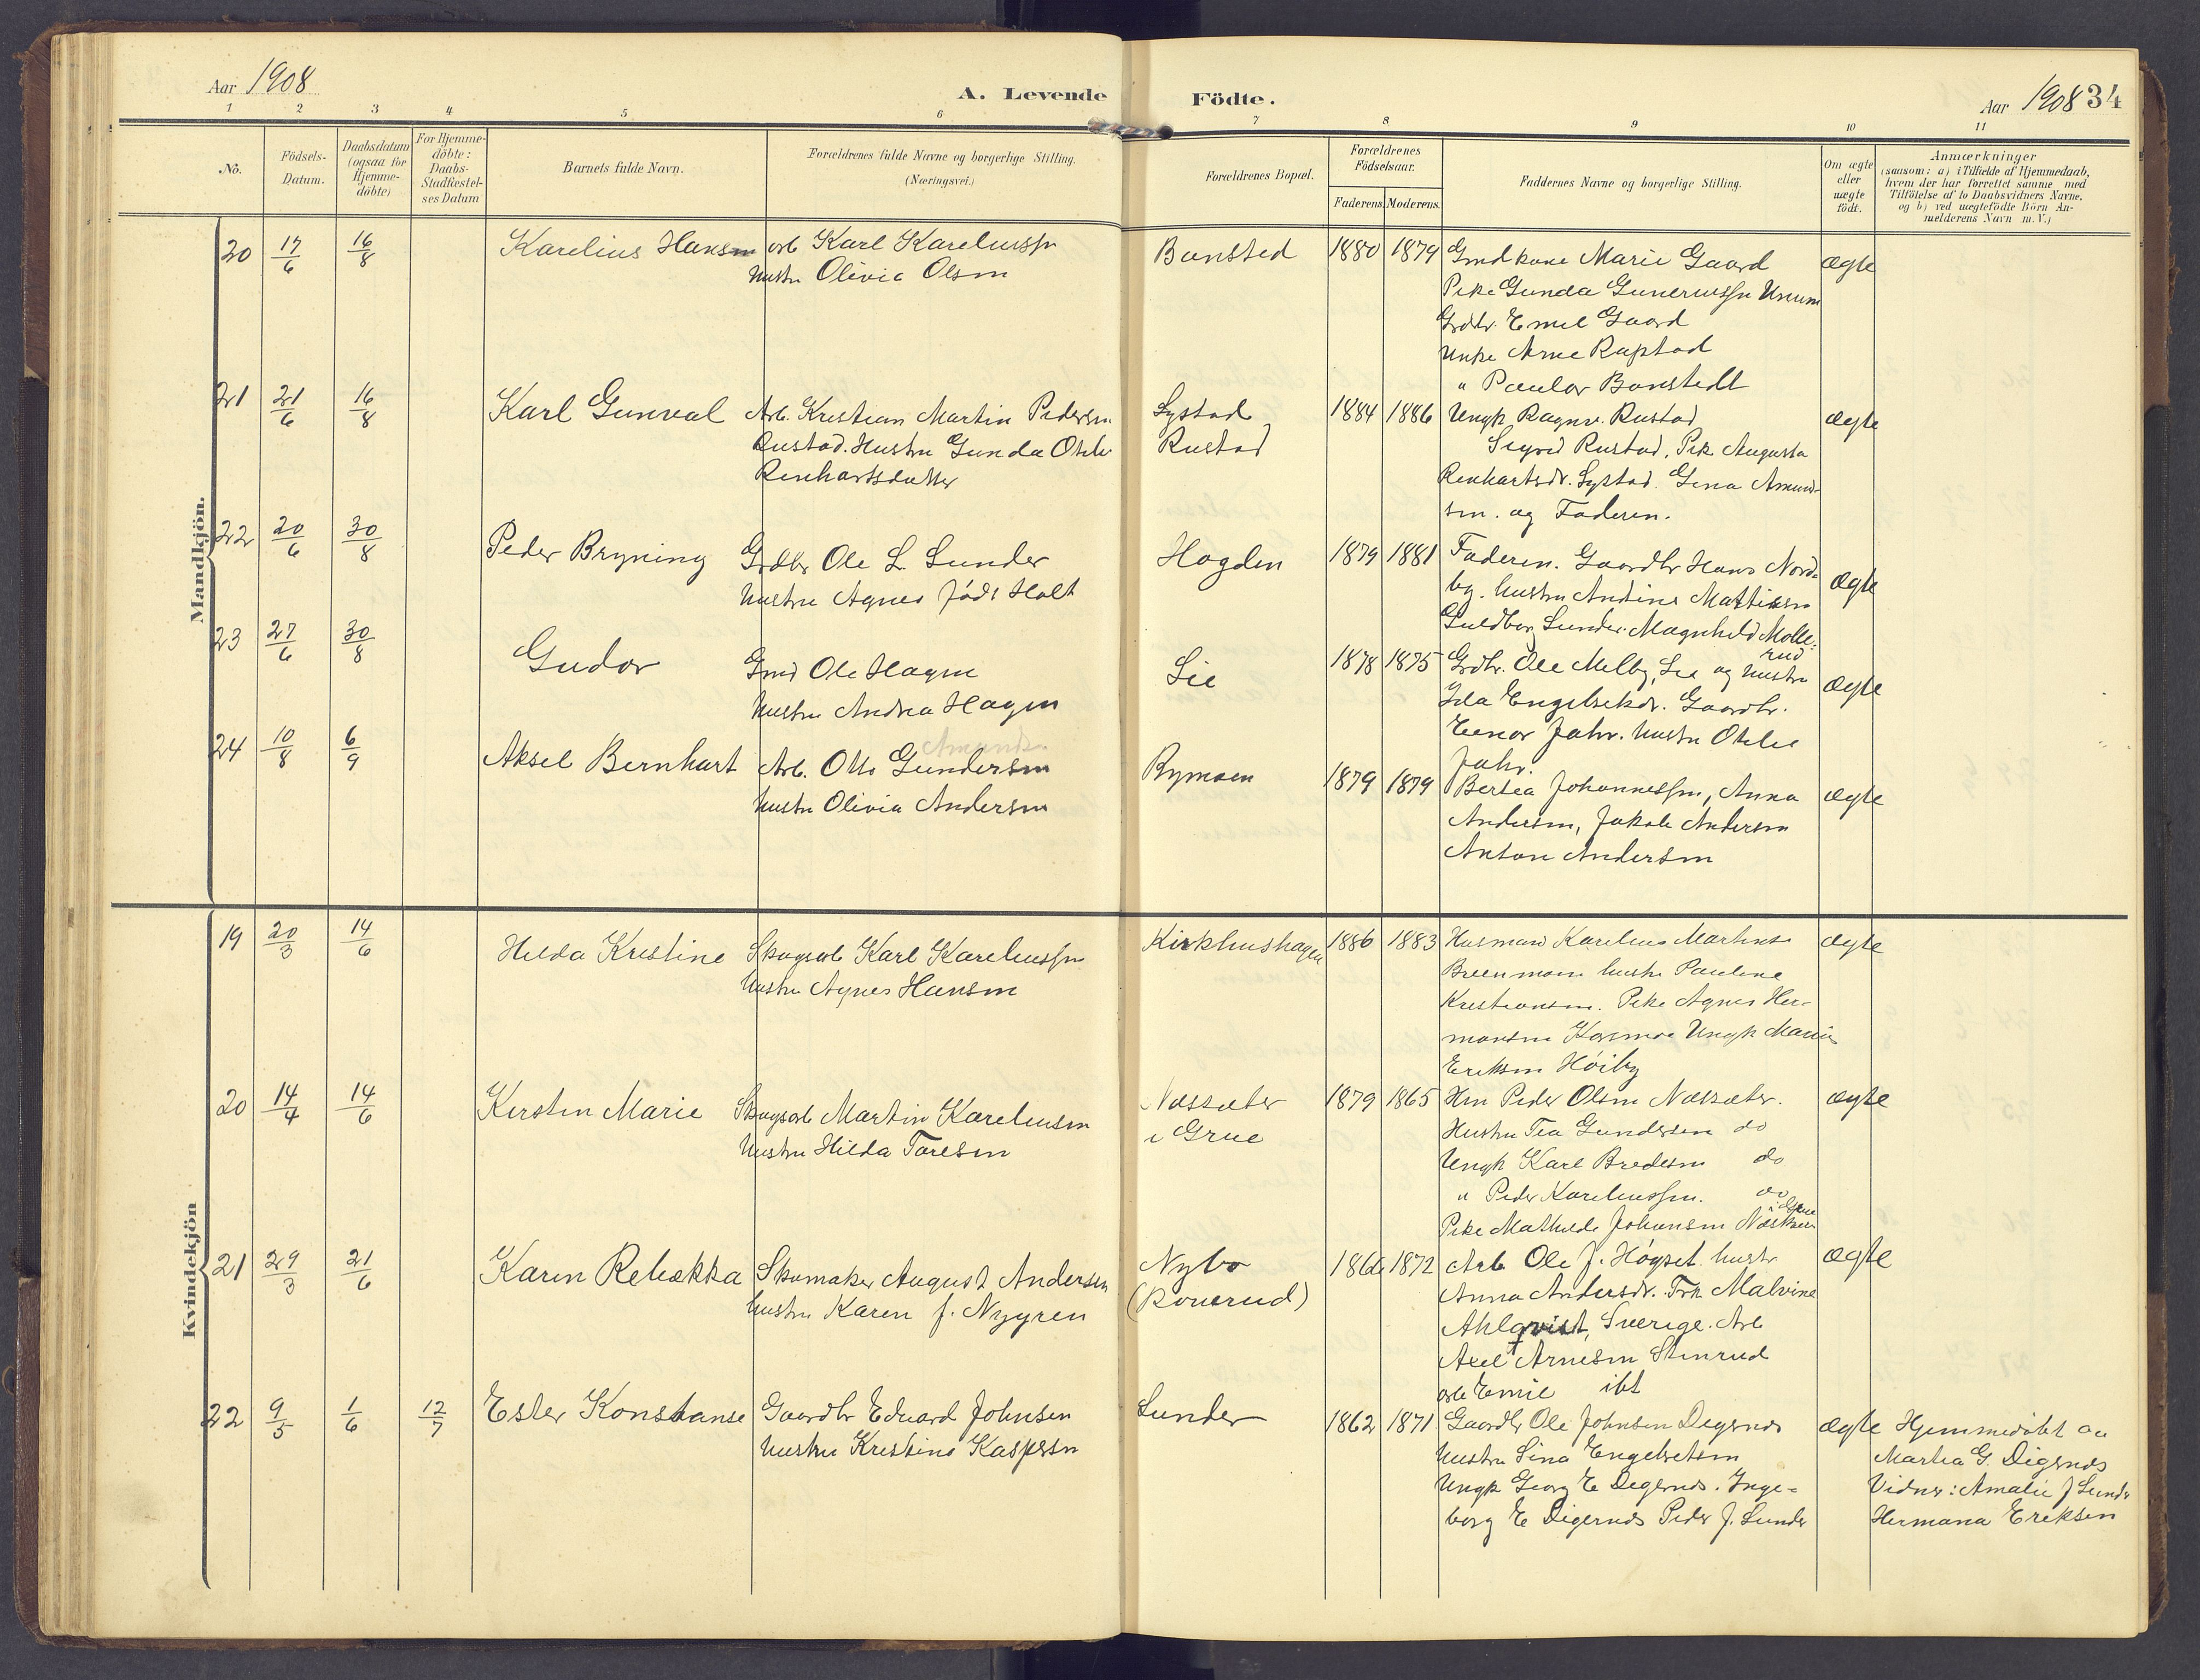 Aar 1908
A. Levende
Födte.
Aar 1908 34
1 2 3 4 5 6 7 8 9 10 11
No.
Födsels-
Datum.
Daabsdatum
(ogsaa for
Hjemme-
döbte)
For Hjemme-
döbte:
Daabs-
Stadfæstel-
ses Datum
Barnets fulde Navn.
Forældrenes fulde Navne og borgerlige Stilling.
(Næringsvei.)
Forældrenes Bopæl.
Forældrenes
Födselsaar.
Faderens. Moderens.
Faddernes Navne og borgerlige Stilling.
Om ægte
eller
uægte
födt.
Anmærkninger
(saasom: a) i Tilfælde af Hjemmedaab,
hvem der har forrettet samme med
Tilföielse af to Daabsvidners Navne,
og b) ved uægtefödte Börn An-
melderens Navn m. V.)
Mandkjön.
20 17/6 16/8 Karelius Hansen arb Karl Kareliussen
Hustru Olivia Olsen
Bansted 1880 1879
Gmdkone Marie Gaard
Pike Gunda
Grdbr. Emil Gaard
Unke Arne Rapstad
" Paulor Banstedt
ægte
21 21/6 16/8 Karl Gunval Arb. Kristian Martin Pedersen
Rustad. Hustru Gunda Otilie
Renhartsdatter
Systad
Rustad
1884 1886
Ungk Ragnv. Rustad
Sigrid Rustad, Pik. Augusta
Renhartsdr. Systad. Gina Amund-
sen. og Faderen.
ægte
22 20/6 30/8 Peder Bryning Grdbr Ole L. Sunder
Hustru Agnes föds Holt
Hogden 1879 1881
Faderen. Gaardbr Hans Nord-
by. Hustru Andine Mattisen
Guldbor Sunder. Magnhild Molle-
rud
ægte
23 27/6 30/8 Gudor Gmd Ole Hagen
Hustru Andrea Hagen
Lie 1878 1875
Grdbr. Ole Melby, Lie og Hustru
Ida Engebrektdr. Gaardbr.
Einar Jahr. Hustru Otilie
Jahr.
ægte
24 10/8 6/9 Aksel Bernhart Arb. Otto Gundersen
Hustru Olivia Andersen
Rymoen 1879 1879
Bertea Johannessen, Anna
Andersen, Jakob Andersen
Anton Andersen
ægte
Kvindekjön
19 20/3 14/6 Hilda Kristine Skogsarb Karl Kareliussen
Hustru Agnes Hansen
Kirkhushagen 1886 1883
Husmand Karelius Martins
Breenmoen hustru Pauline
Kristiansen. Pike Agnes Her-
mansen Ungk Marius
Eriksen Höiby
ægte
20 14/4 14/6 Kirsten Marie Skogsarb Martin Kareliusen
Hustru Hilda Toresen
Næssæter
i Grue
1879 1865
Hm Peder Olsen Næssæter.
Hustru Tea Gundersen do
Ungk Karl Bredesen do
" Peder Kareliussen. do
i Grue
Pike Mathilde Johansen
ægte
21 29/3 21/6 Karen Rebekka Skomaker August Andersen
Hustru Karen J. Nygren
Nybo
(Roverud)
1866 1872
Arb Ole J. Högset. hustr
Anna Andersdr. Frk Malvine
Ahlqvist, Sverige. Arb
Axel Arnesen Stenrud
arb Emil ibt
ægte
22 9/5 1/6 12/7 Ester Konstanse Gaardbr Edvard Johnsen
Hustru Kristine Kaspersen
Sunder 1862 1871
Gaardbr Ole Johnsen Digernæs
Hustru Lina Engebretsen
Ungk Georg E Digernæs. Inge-
borg E Digernæs Peder J. Sunder
ægte
Hjemmedöbt av
Martea G. Digernæs
Vidner: Amalie J Sunder
Hermana Eriksen